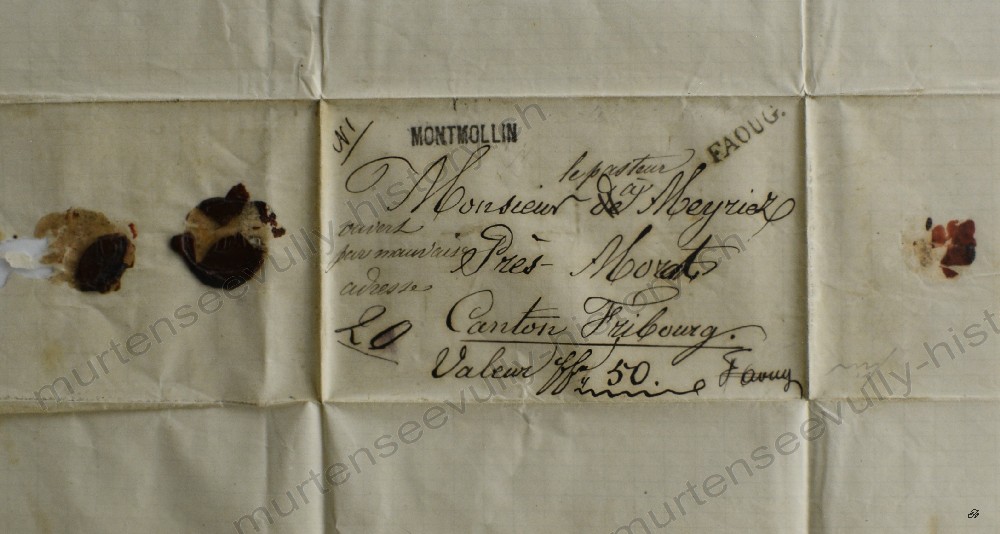 N1
MONTMOLLIN
FAOUG.
le pasteur
à
Monsieur de Meyriez
ouvert
par mauvaise
adresse
Près- Morat
Canton Fribourg.
20
Valeur ffr 50.
Faoug
murtenseevully-history.ch